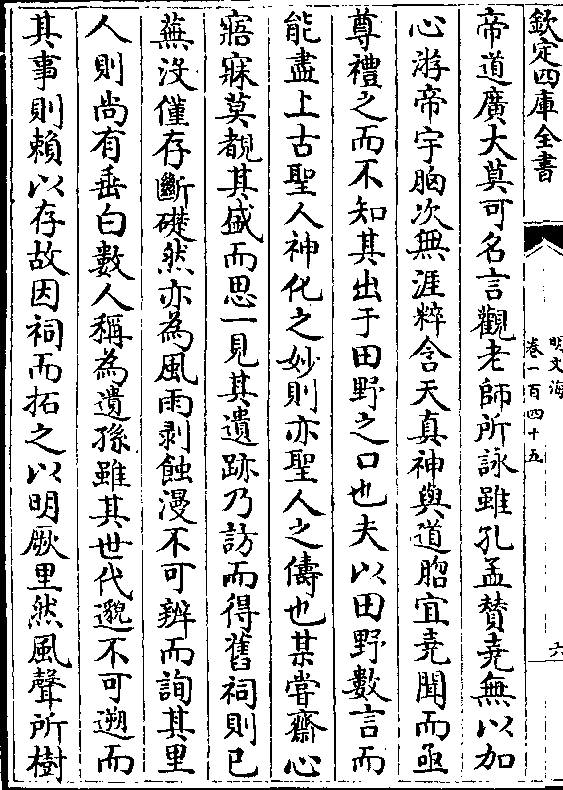 欽定四庫全書
明文海
卷一百四十五
六
帝道廣大莫可名言觀老師所詠雖孔孟賛堯無以加
心游帝宇胸次無涯粹含天真神與道㫼宜堯聞而亟
尊禮之而不知其出于田野之口也夫以田野數言而
能盡上古聖人神化之妙則亦聖人之儔也某嘗齋心
寤寐莫覩其盛而思一見其遺跡乃訪而得舊祠則已
蕪沒僅存斷礎然亦為風雨剥蝕漫不可辨而詢其里
人則尚有垂白數人稱為遺孫雖其世代邈不可遡而
其事則賴以存故因祠而拓之以明厥里然風聲所樹